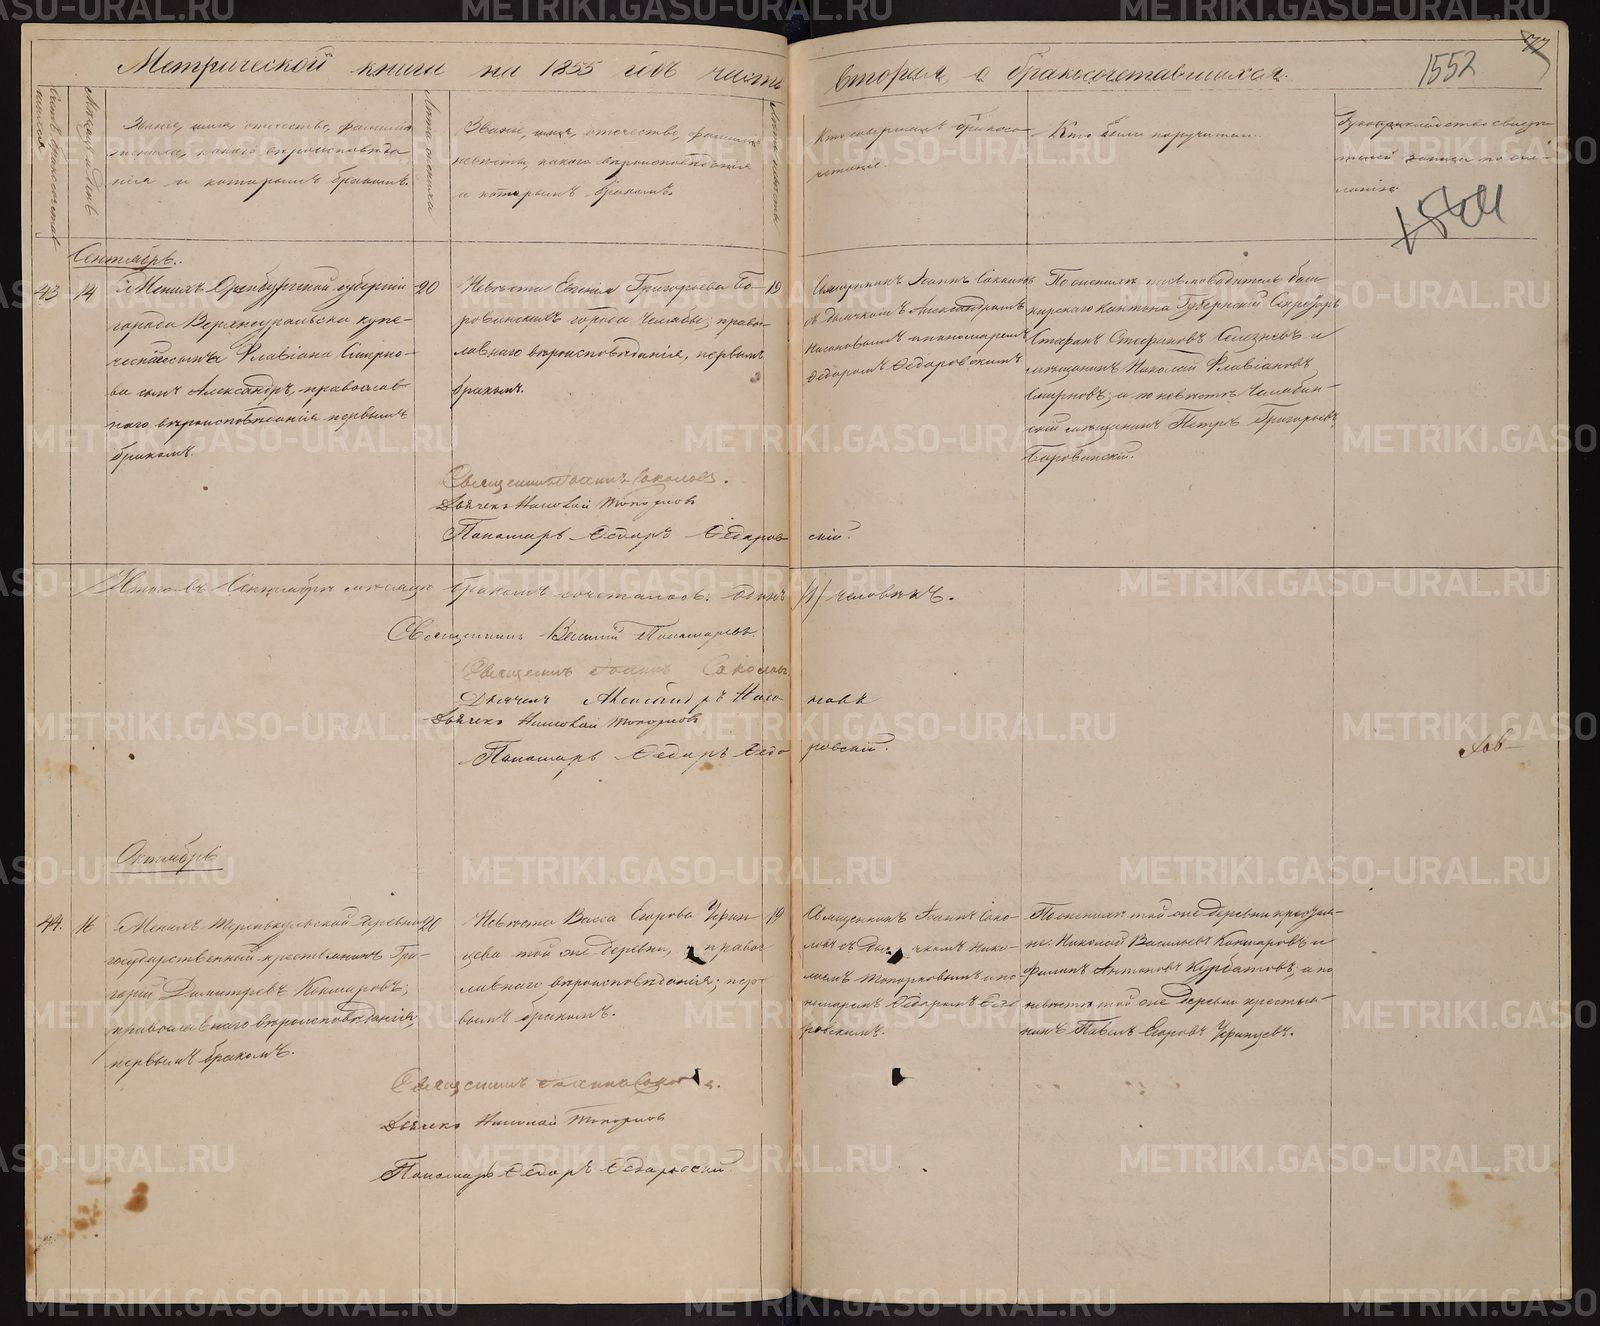 Метрической книги на 1855 годъ часть вторая о бракосочетавшихся.
1552
Званіе, имя, отчество, фамилія
жениха, какого вѣроисповѣда-
нія и которымъ бракомъ.
Лѣта жениха
Званіе, имя, отчество, фамилія
невѣсты, какого вѣроисповѣданія
и которымъ бракомъ.
Лѣта невѣсты
Кто совершалъ бракосо-
четаніе.
Кто были поручители.
Сентябрь.
43
14
Женихъ Оренбургской губерніи
города Верхнеуральска купе-
Флавіана Смирно-
ва сынъ Александръ, православ
наго вѣроисповѣданія первымъ
бракомъ.
20
Невѣста Евгенія Григорьева Бо-
ровинскихъ города Челябы; право-
славнаго вѣроисповѣданія, первымъ
бракомъ.
19
Священникъ Іоаннъ Соколовъ
съ дьячкомъ Александромъ
и пономаремъ
Ѳедоромъ Ѳедоровскимъ
По женихѣ письмоводитель баш-
кирскаго кантона Губернскій Секретарь
Стефанъ Стефановъ Селезневъ и
мѣщанинъ Николай Флавіановъ
Смирновъ; а по невѣстѣ Челябин-
скій мѣщанинъ Петръ Григорьевъ
Боровинскій.
Священникъ Іоаннъ Соколовъ.
Дьячекъ Николай Топорковъ
Пономарь Ѳедоръ Ѳедоровскій.
Итого въ Сентябрѣ мѣсяцѣ бракомъ сочеталось одинъ /1/ человѣкъ.
Священникъ Василій Пономаревъ.
Священникъ Іоаннъ Соколовъ
Дьячекъ Николай Топорковъ
Пономарь Ѳедоръ Ѳедоровскій.
Октябрь
44.
16
Женихъ деревни
государственный крестьянинъ Гри-
горій Димитріевъ Кокшаровъ;
православнаго вѣроисповѣданія,
первымъ бракомъ.
20
Невѣста Васса Егорова Уфин-
цева той же деревни, право-
славнаго вѣроисповѣданія; пер-
вымъ бракомъ.
19
Священникъ Іоаннъ Соко-
ловъ съ дьячкомъ Нико-
лаемъ Топорковымъ и по-
номаремъ Ѳедоромъ Ѳедо-
ровскимъ.
По женихѣ той же деревни крестьян-
не: Николай Васильевъ Кокшаровъ и
Филипъ Антоновъ Курбатовъ, а по
невѣстѣ той же деревни крестья-
нинъ Павелъ Егоровъ Уфинцевъ.
Священникъ Іоаннъ Соколовъ.
Дьячекъ Николай Топорковъ
Пономарь Ѳедоръ Ѳедоровскій
METRIKI.GASO-URAL.RU